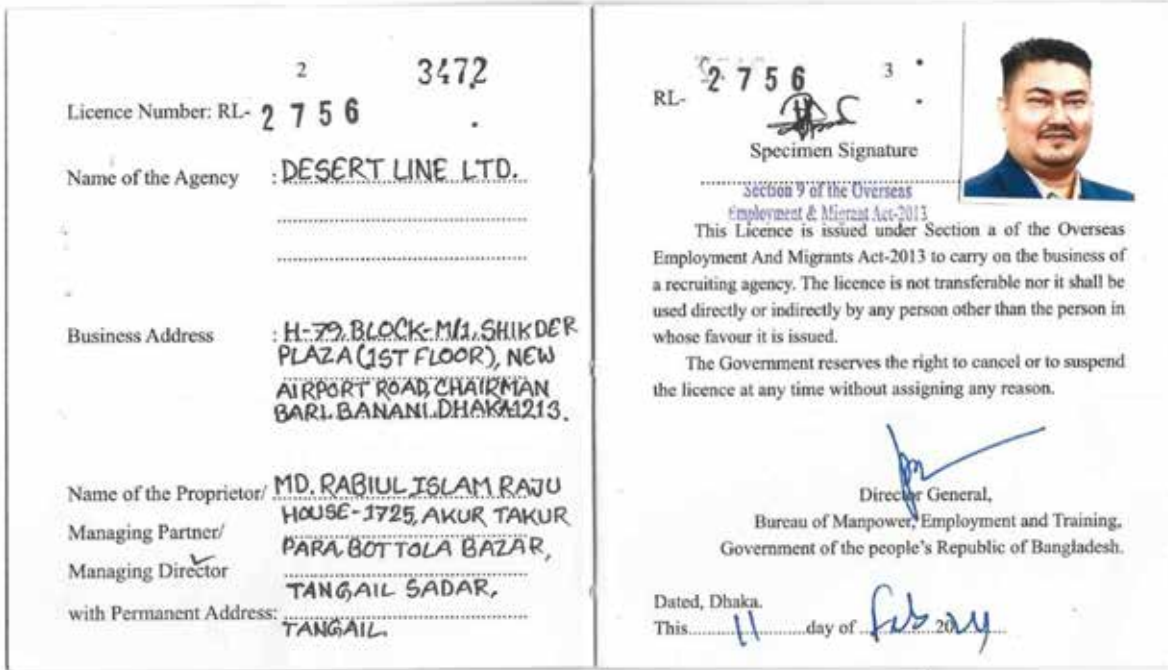 2 3472
Licence Number: RL- 2 7 5 6
Name of the Agency : DESERT LINE LTD.
Business Address : H-79, BLOCK-M/1, SHIKDER
PLAZA (1ST FLOOR), NEW
AIRPORT ROAD, CHAIRMAN
BARI, BANANI, DHAKA1213.
Name of the Proprietor/ MD. RABIUL ISLAM RAJU
HOUSE-1725, AKUR TAKUR
Managing Partner/
PARA, BOTTOLA BAZAR,
Managing Director
TANGAIL SADAR,
with Permanent Address:
TANGAIL.
RL- 2 7 5 6 3
Specimen Signature
Section 9 of the Overseas
Employment & Migrant Act-2013
This Licence is issued under Section a of the Overseas
Employment And Migrants Act-2013 to carry on the business of
a recruiting agency. The licence is not transferable nor it shall be
used directly or indirectly by any person other than the person in
whose favour it is issued.
The Government reserves the right to cancel or to suspend
the licence at any time without assigning any reason.
Director General,
Bureau of Manpower, Employment and Training,
Government of the people's Republic of Bangladesh.
Dated, Dhaka.
This 11 day of Feb 2024